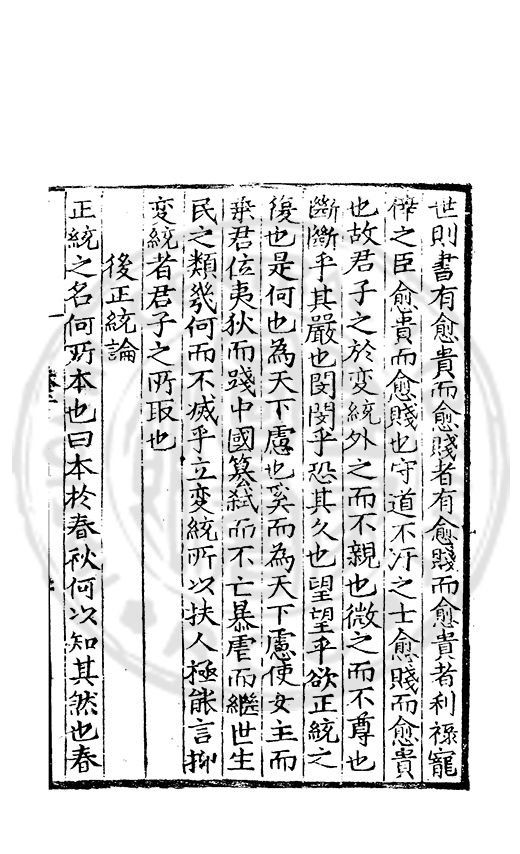 世則書有愈貴而愈賤者有愈賤而愈貴者利祿寵
倖之臣愈貴而愈賤也守道不汙之士愈賤而愈貴
也故君子之於変統外之而不親也微之而不尊也
斷斷乎其嚴也閔閔乎恐其久也望望乎欲正統之
復也是何也為天下慮也奚而為天下慮使女主而
乗君位夷狄而踐中國簒弑而不亡暴虐而繼世生
民之類幾何而不滅乎立変統所以扶人極能言抑
変統者君子之所取也
後正統論
正統之名何所本也曰本於春秋何以知其然也春